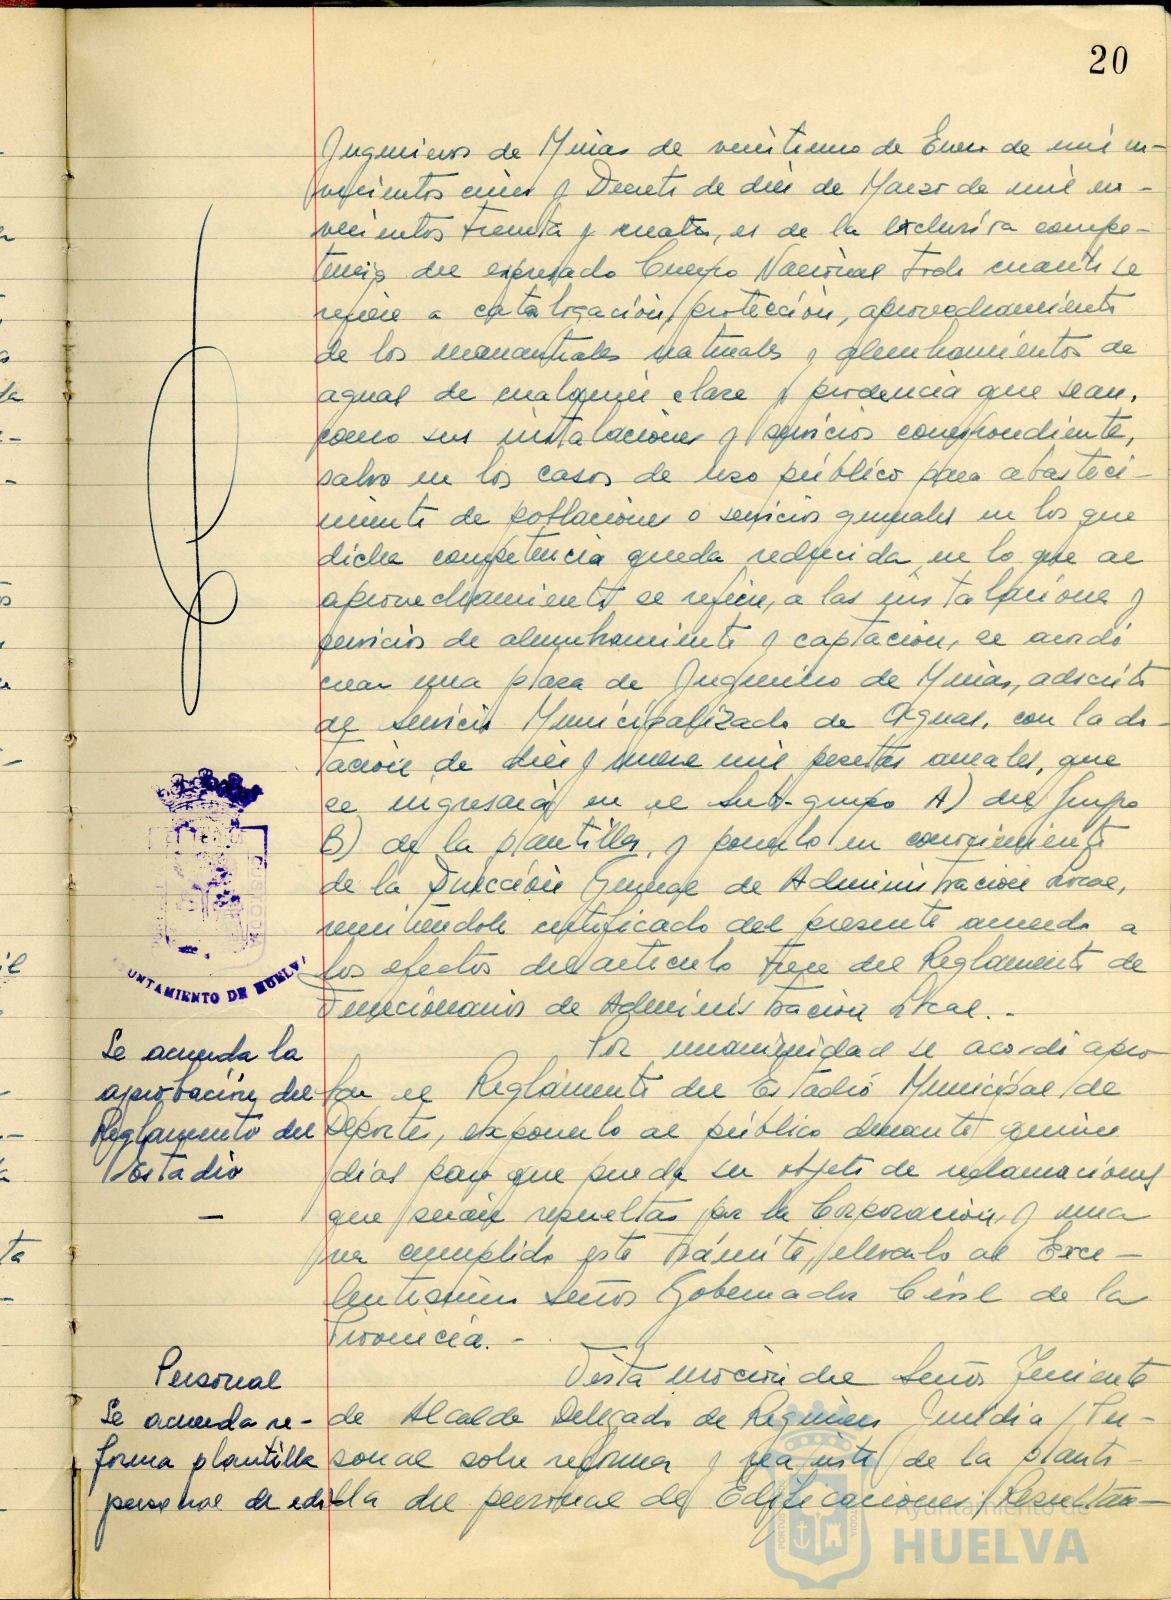 20
Ingenieros de Minas de veintiuno de Enero de mil no-
vecientos cinco y Decreto de diez de Marzo de mil no-
vecientos treinta y cuatro, es de la exclusiva compe-
tencia del expresado Cuerpo Nacional todo cuanto se
refiere a catalogación, protección, aprovechamiento
de los manantiales naturales y alumbramientos de
aguas de cualquier clase y procedencia que sean,
como sus instalaciones y servicios correspondientes,
salvo en los casos de uso público para abasteci-
miento de poblaciones o servicios generales en los que
dicha competencia queda reducida, en lo que al
aprovechamiento se refiere, a las instalaciones y
servicios de alumbramiento y captación, se acordó
crear una plaza de Ingeniero de Minas, adscrito
al Servicio Municipalizado de Aguas, con la do-
tación de diez y nueve mil pesetas anuales, que
se ingresará en el Sub-grupo A) del Grupo
B) de la plantilla, y ponerlo en conocimiento
de la Dirección General de Administración Local,
remitiéndole certificado del presente acuerdo a
los efectos del artículo trece del Reglamento de
Funcionarios de Administración Local.-
AYUNTAMIENTO DE HUELVA
Se acuerda la
aprobación del
Reglamento del
Estadio
Por unanimidad se acordó apro-
bar el Reglamento del Estadio Municipal de
Deportes, exponerlo al público durante quince
días para que pueda ser objeto de reclamaciones
que serán resueltas por la Corporación, y una
vez cumplido este trámite, elevarlo al Exce-
lentísimo Señor Gobernador Civil de la
Provincia.-
Personal
Se acuerda re-
forma plantilla
personal de edi
Vista moción del Señor Teniente
de Alcalde Delegado de Régimen Jurídico y Per-
sonal sobre reforma y reajuste de la planti-
lla del personal de Edificaciones; Resultan-
Ayuntamiento de
HUELVA